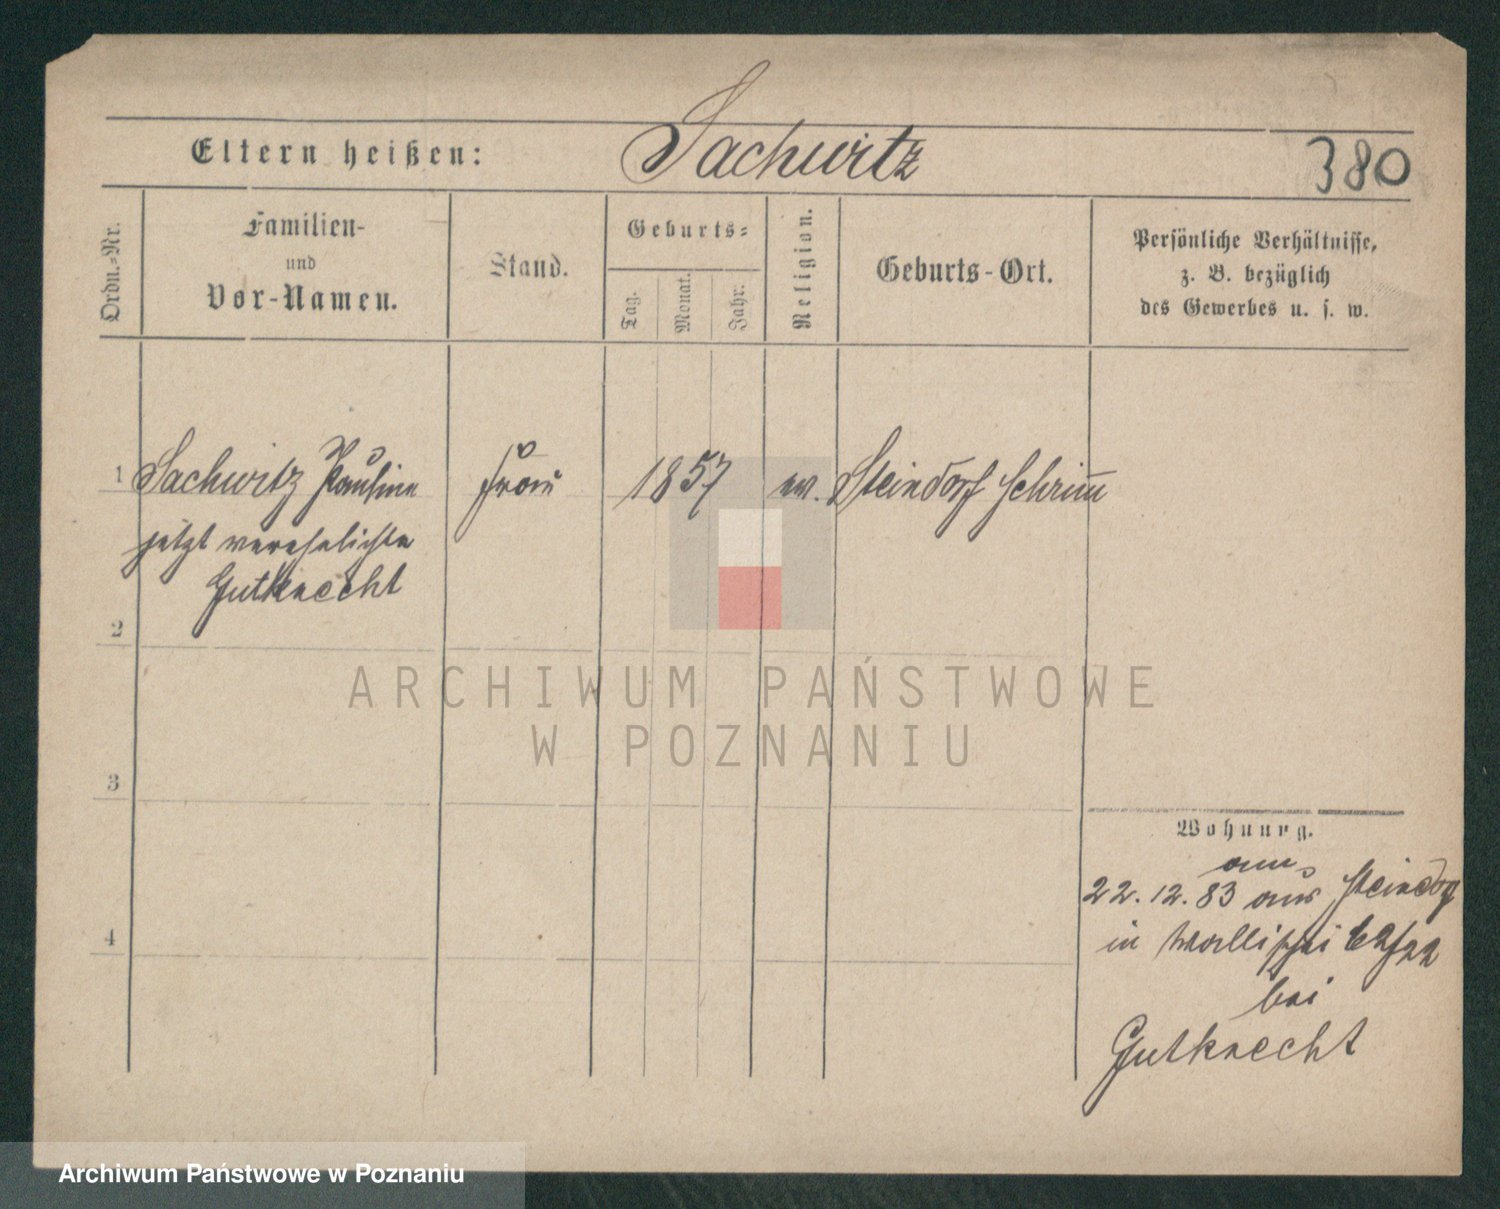 Eltern heißen: Sachwitz 380
Ordn.-Nr.
Familien-
und
Vor-Namen.
Stand.
Geburts-
Tag.
Monat.
Jahr.
Religion.
Geburts-Ort.
Persönliche Verhältnisse,
z. B. bezüglich
des Gewerbes u. s. w.
1 Sachwitz Pauline Frau 1857 ev. Steindorf Schrimm
jetzt verehelichte
Gutknecht
2
3
4
Wohnung.
22. 12. 83 aus Steindorf
in Wallischei
bei
Gutknecht
ARCHIWUM PAŃSTWOWE
W POZNANIU
Archiwum Państwowe w Poznaniu